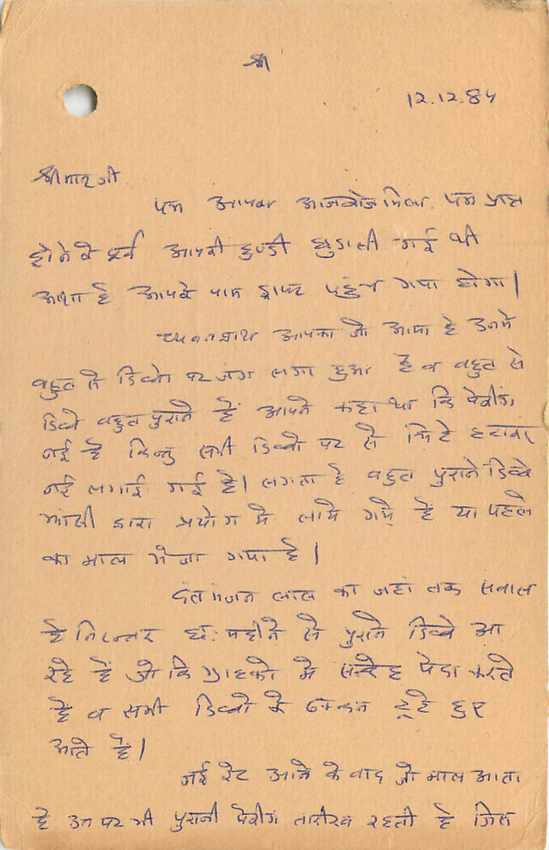 श्री
12.12.84
श्रीमान जी
पत्र आपका आज रोज मिला. पत्र प्राप्त
होने के पूर्व आपकी हुण्डी छुडाली गई थी
आशा है आपके पास ड्राफ्ट पहुंच गया होगा।
च्यवनप्राश आपका जो आया है उसमें
बहुत से डिब्बो पर जंग लगा हुआ है व बहुत से
डिब्बे बहुत पुराने हैं आपने कहा था कि पेकींग
नई है किन्तु सभी डिब्बो पर से चिटे हटाकर
नई लगाई गई है। लगता है बहुत पुराने डिब्बे
झांसी द्वारा प्रयोग में लाये गये हैं या पहले
का माल भेजा गया है।
दंत मंजन लाल का जहां तक सवाल
है निरन्तर छः महीने से पुराने डिब्बे आ
रहे हैं जो कि ग्राहको मे सन्देह पैदा करते
है व सभी डिब्बो के ढक्कन टूटे हुए
आते है।
नई रेट आने के बाद जो माल आता
है उस पर भी पुरानी पेकींग तारीख रहती है जिस